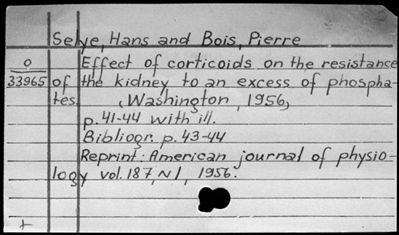 Selye, Hans and Bois, Pierre
O Effect of corticoids on the resistance
33965 of the kidney to an excess of phospha-
tes. (Washington, 1956)
p. 41-44 with ill.
Bibliogr. p. 43-44
Reprint: American journal of physio-
logy vol. 187, N 1, 1956.
+